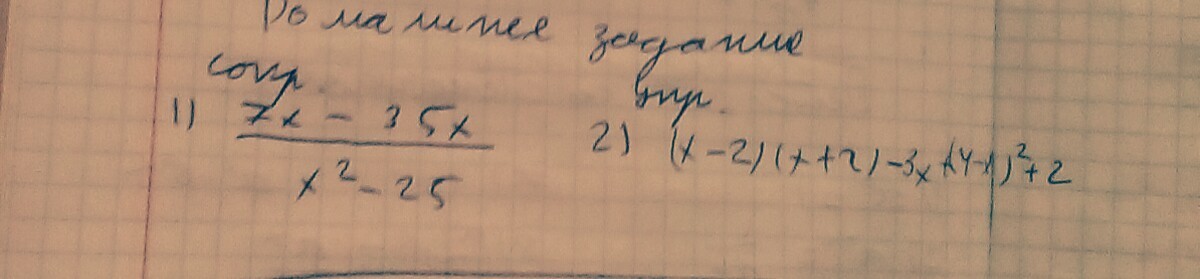 Домашнее задание
сокр. упр.
1) 7x - 35x 2) (x-2)(x+2)-3x+(4-x)²+2
x² - 25